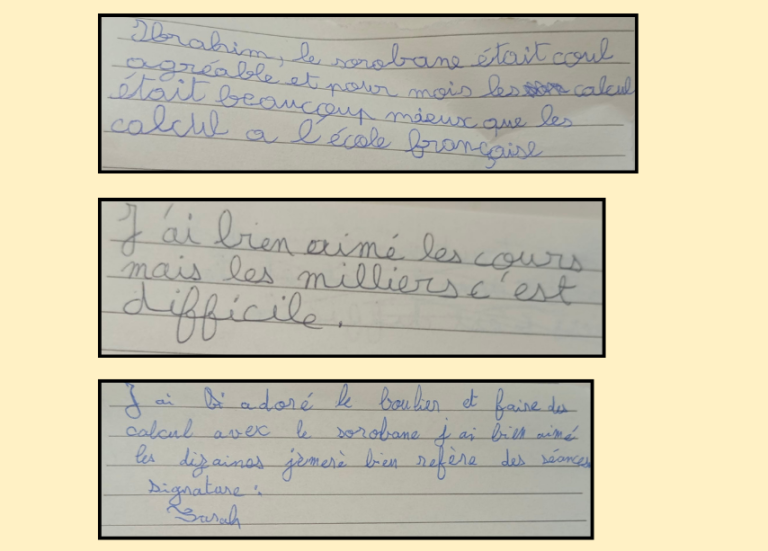 Ibrahim, le sorobane était coul
agréable et pour mois les calcul
était beaucoup mieux que les
calcul a l'école française
J'ai bien aimé les cours
mais les milliers c'est
difficile.
J'ai adoré le boulier et faire des
calcul avec le sorobane j'ai bien aimé
les dizaines j'emerè bien refère des séances
signature :
Sarah